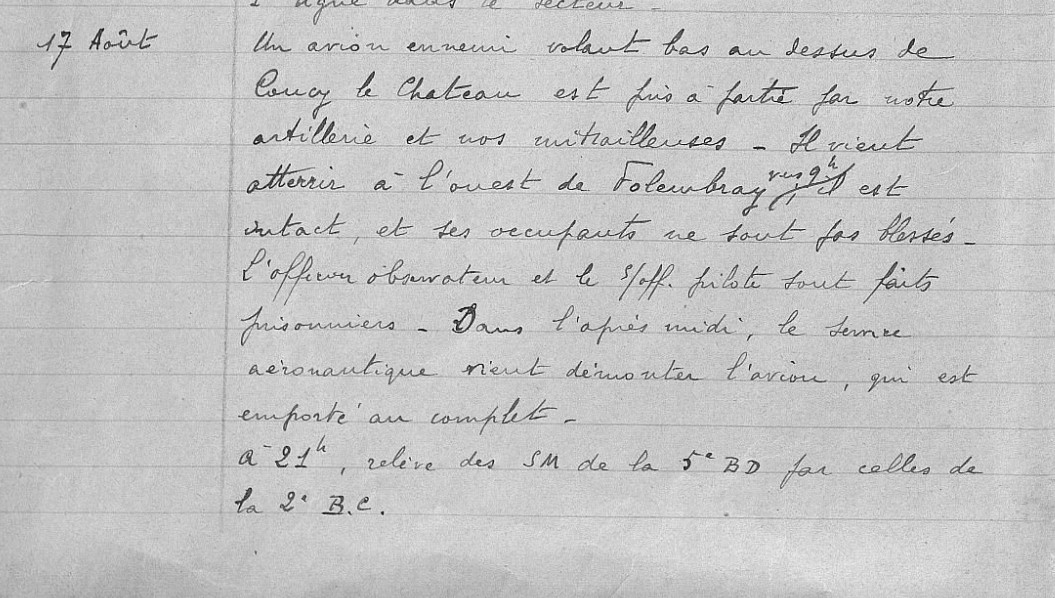 2e ligne dans le secteur -
17 Août Un avion ennemi volant bas au dessus de
Coucy le Chateau est pris à partie par notre
artillerie et nos mitrailleuses - Il vient
atterrir à l'ouest de Folembray vers 9h il est
intact, et ses occupants ne sont pas blessés -
L'officier observateur et le s/off. pilote sont faits
prisonniers - Dans l'après midi, le service
aéronautique vient démonter l'avion, qui est
emporté au complet -
à 21h, relève des SM de la 5e BD par celles de
la 2e B.C.